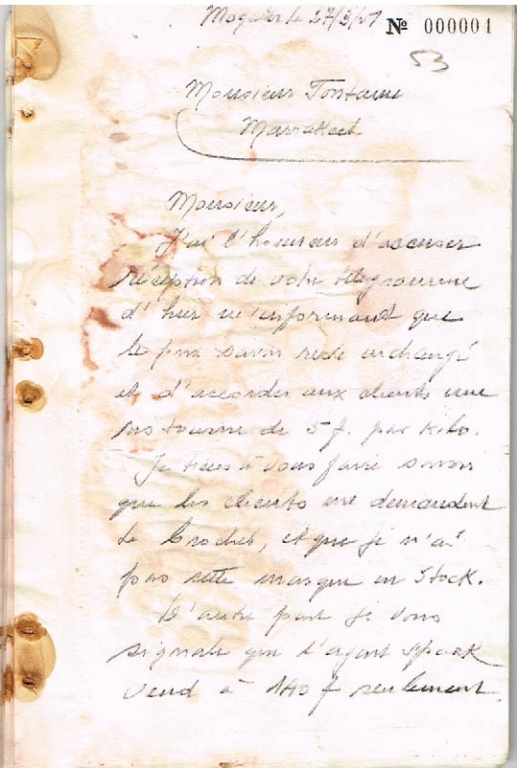 Mogador le 27/3/51
Nº 000001
53
Monsieur Fontaine
Marrakech
Monsieur,
J'ai l'honneur d'accuser
réception de votre télégramme
d'hier m'informant que
le prix savon reste inchangé
et d'accorder aux clients une
ristourne de 5 f. par kilo.
Je tiens à vous faire savoir
que les clients me demandent
le Crochet, et que je n'ai
pas cette marque en Stock.
D'autre part je vous
signale que l'agent Spaak
vend à 140 f seulement